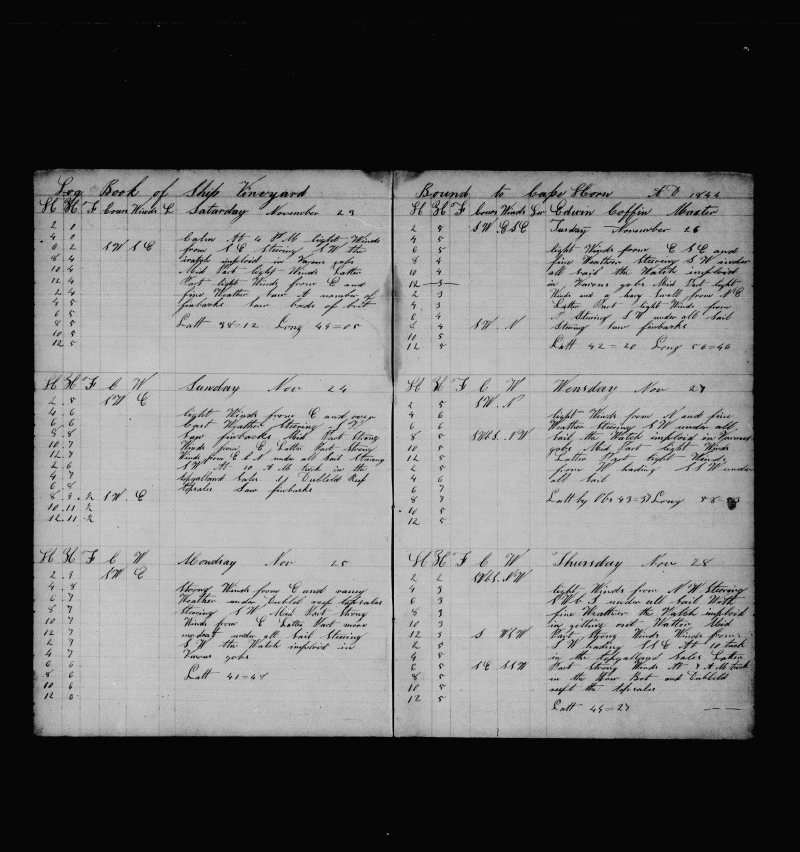 Log Book of Ship Vineyard
H K F Cours Winds L Saturday November 23
2 0
4 0
6 2 SW SE
8 4
10 4
12 4
2 4
4 5
6 5
8 5
10 5
12 5
Calm At 4 PM light Winds
from SE Stering SW the
watch imploid in Varous gobs
Mid Part light Winds Latter
Part light Winds from E and
fine Weather Saw A number of
finbacks Saw beds of brit
Latt 38=12 Long 49=05
H K F C W Sunday Nov 24
2 5 SW E
4 6
6 6
8 8
10 7
12 7
2 6
4 7
6 8
8 9 ½ SW E
10 11 ½
12 11 ½
light Winds from E and over
Cast Weather Stering SW
Saw finbacks Mid Part Strong
Winds from E Latter Part Strong
Winds from E b N under all Sail Stering
SW At 10 AM tuck in the
topgalland Sales 11 Dubleld Reef
topsales Saw finbacks
H K F C W Monday Nov 25
2 9 SW E
4 8
6 7
8 7
10 7
12 7
2 7
4 7
6 6
8 6
10 6
12 6
Strong Winds from E and rainy
Weather under Dubleld reef topsales
Stering SW Mid Part Strong
Winds from E Latter Part more
modrat under all Sail Stering
SW the Watch imploid in
Varous gobs
Latt 41=48
Bound to Cape Horn AD 1844
H K F Cours Winds Lw Edwin Coffin Master
2 5 SW E SE Tusday November 26
4 5
6 5
8 4
10 4
12 3
2 3
4 3
6 4
8 4 SW N
10 5
12 5
light Winds from E SE and
fine Weather Stering SW under
all Sail the Watch imploid
in Varous gobs Mid Part light
Winds and a heavy Swell from NE
Latter Part light Winds from
N Stering SW under all Sail
Stering Saw finbacks
Latt 42=20 Long 50=46
H K F C W Wensday Nov 27
2 5 SW N
4 6
6 6
8 5 SWbS NW
10 5
12 5
2 5
4 6
6 7
8 7
10 5
12 5
light Winds from N and fine
Weather Stering SW under all
Sail the Watch imploid in Varous
gobs Mid Part light Winds
Latter Part light Winds
from W heading SSW under
all Sail
Latt by Obs 43=37 Long
H K F C W Thursday Nov 28
2 2 SWbS NW
4 3
6 3
8 3
10 3
12 3 S WSW
2 5
4 5
6 5 SE SSW
8 5
10 5
12 5
light Winds from NW Stering
SWbS under all Sail With
fine Weather the Watch imploid
in gitting out Watter Mid
Part Strong Winds Winds from
SW heading SSE At 10 tuck
in the topgalland Sales Latter
Part Strong Winds At 7 AM tuck
in the Bow Bot and Dubleld
reeft the topsales
Latt 44=27